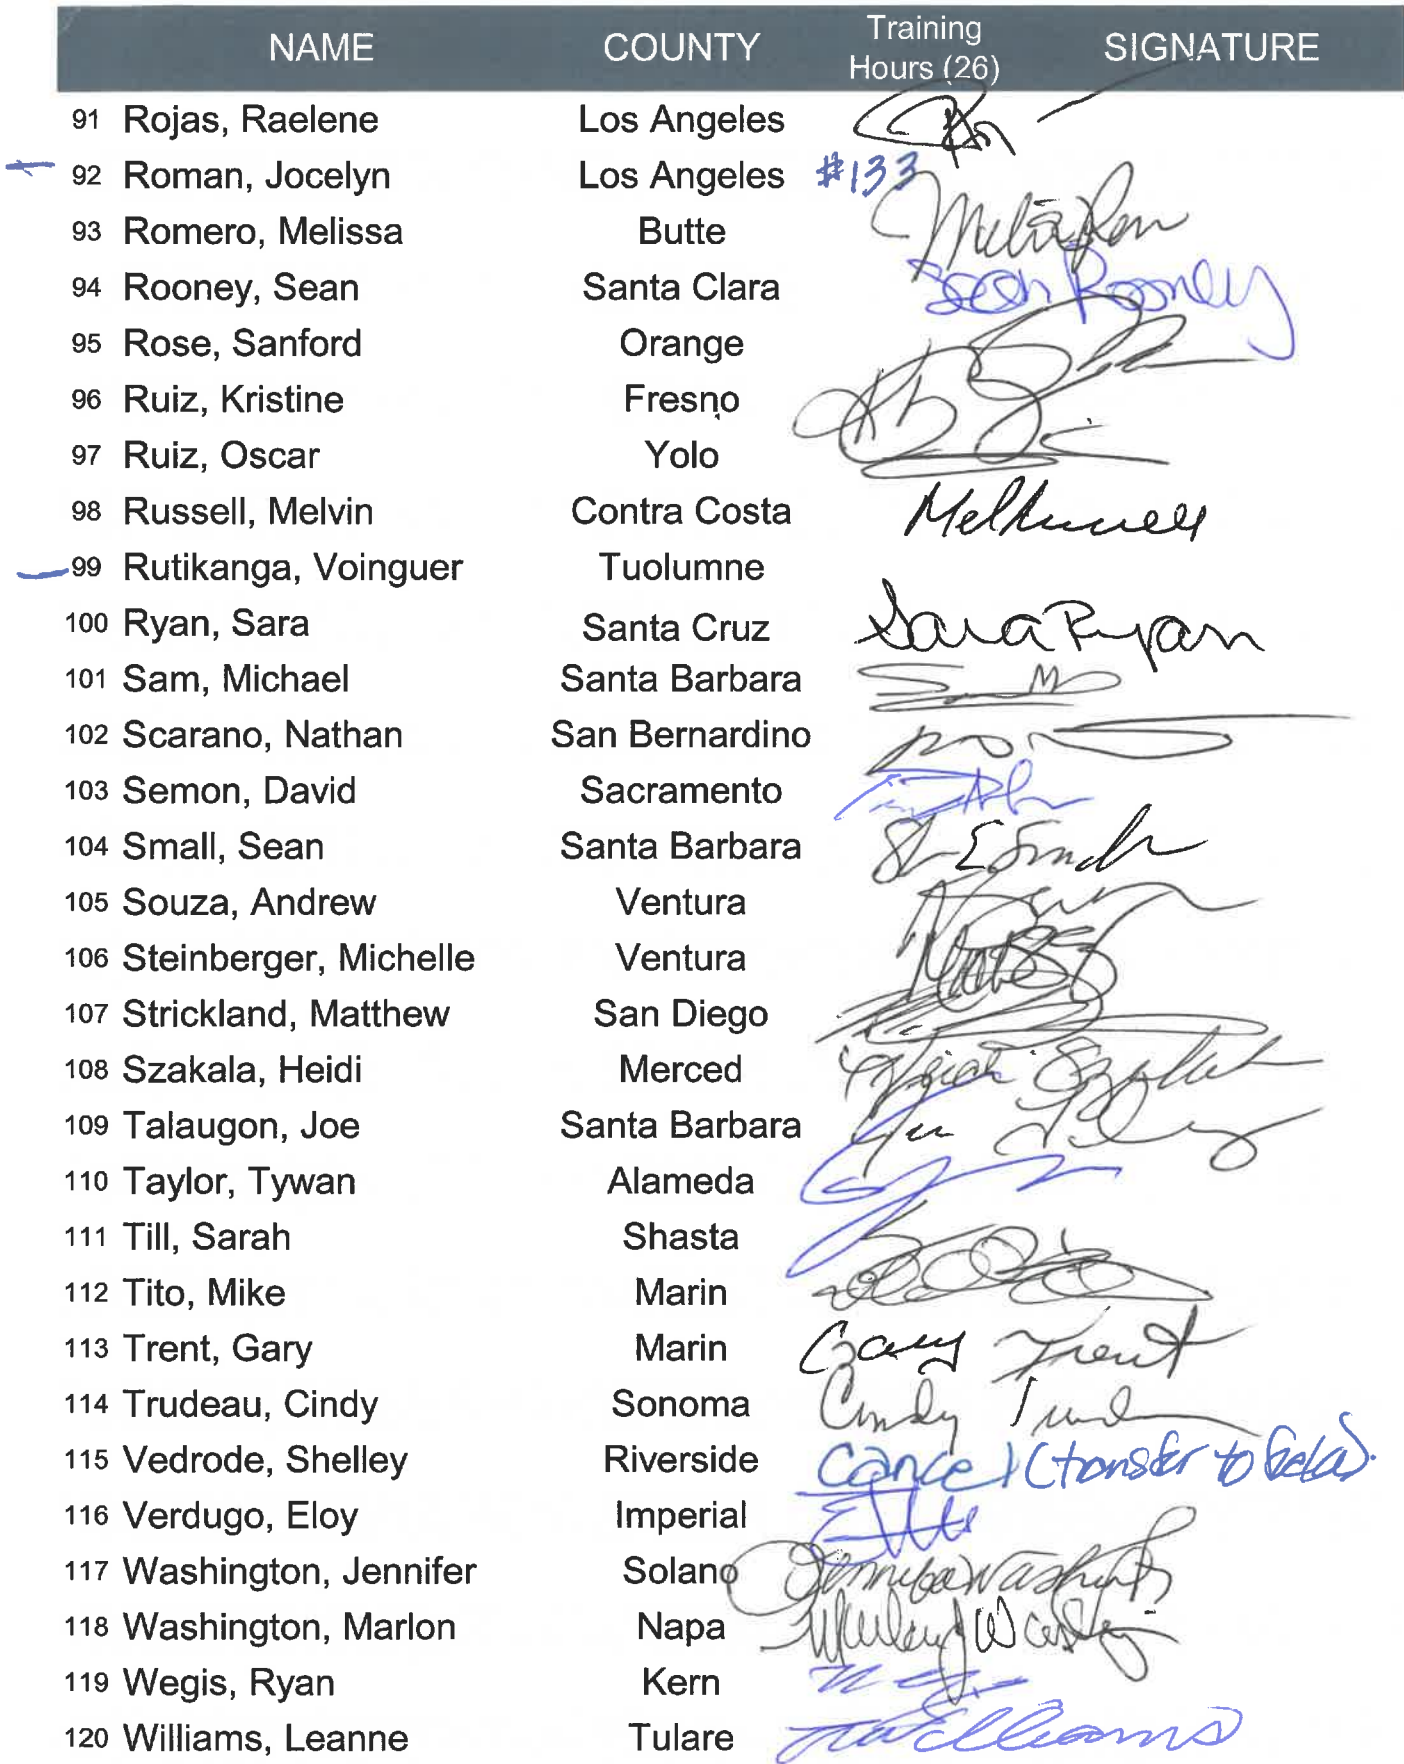 NAME COUNTY Training Hours (26) SIGNATURE
91 Rojas, Raelene Los Angeles
92 Roman, Jocelyn Los Angeles #133
93 Romero, Melissa Butte
94 Rooney, Sean Santa Clara Sean Rooney
95 Rose, Sanford Orange
96 Ruiz, Kristine Fresno
97 Ruiz, Oscar Yolo
98 Russell, Melvin Contra Costa
99 Rutikanga, Voinguer Tuolumne
100 Ryan, Sara Santa Cruz Sara Ryan
101 Sam, Michael Santa Barbara
102 Scarano, Nathan San Bernardino
103 Semon, David Sacramento
104 Small, Sean Santa Barbara
105 Souza, Andrew Ventura
106 Steinberger, Michelle Ventura
107 Strickland, Matthew San Diego
108 Szakala, Heidi Merced
109 Talaugon, Joe Santa Barbara
110 Taylor, Tywan Alameda
111 Till, Sarah Shasta
112 Tito, Mike Marin
113 Trent, Gary Marin Gary Trent
114 Trudeau, Cindy Sonoma Cindy
115 Vedrode, Shelley Riverside Cancel (transfer to field).
116 Verdugo, Eloy Imperial
117 Washington, Jennifer Solano
118 Washington, Marlon Napa
119 Wegis, Ryan Kern
120 Williams, Leanne Tulare